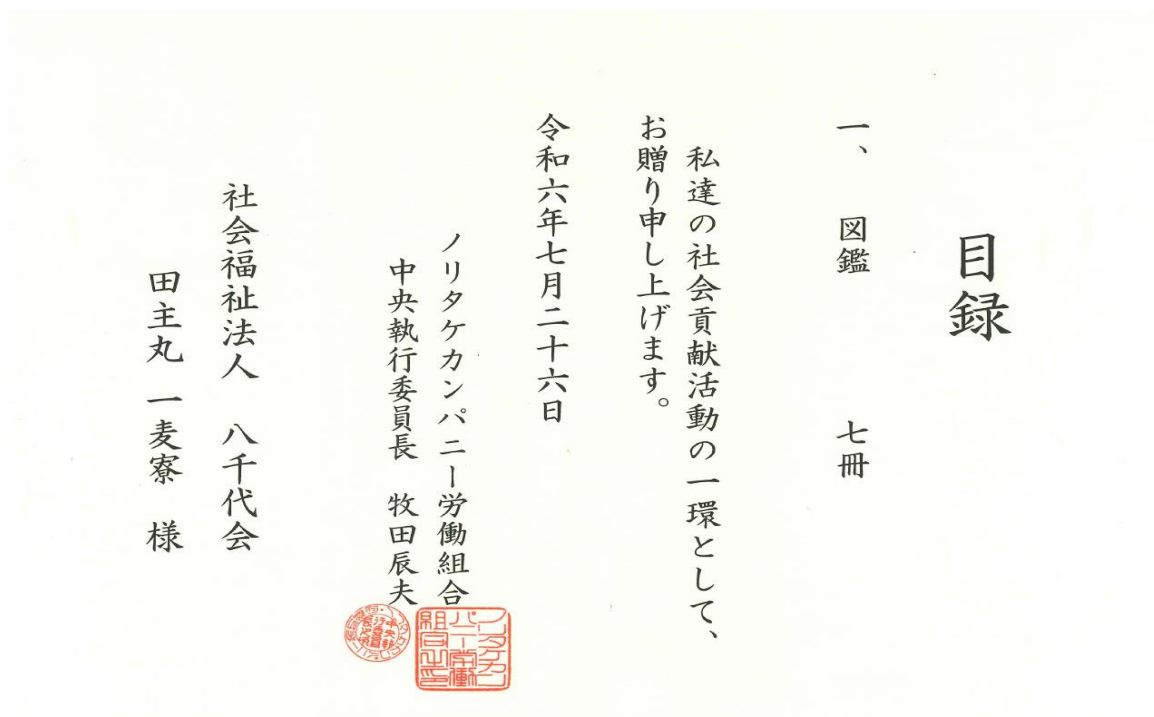 目録
一、 図鑑 七冊
私達の社会貢献活動の一環として、
お贈り申し上げます。
令和六年七月二十六日
ノリタケカンパニー労働組合
中央執行委員長 牧田辰夫
ノリタケカン
パニー労働
組合之印
社会福祉法人 八千代会
田主丸 一麦寮 様